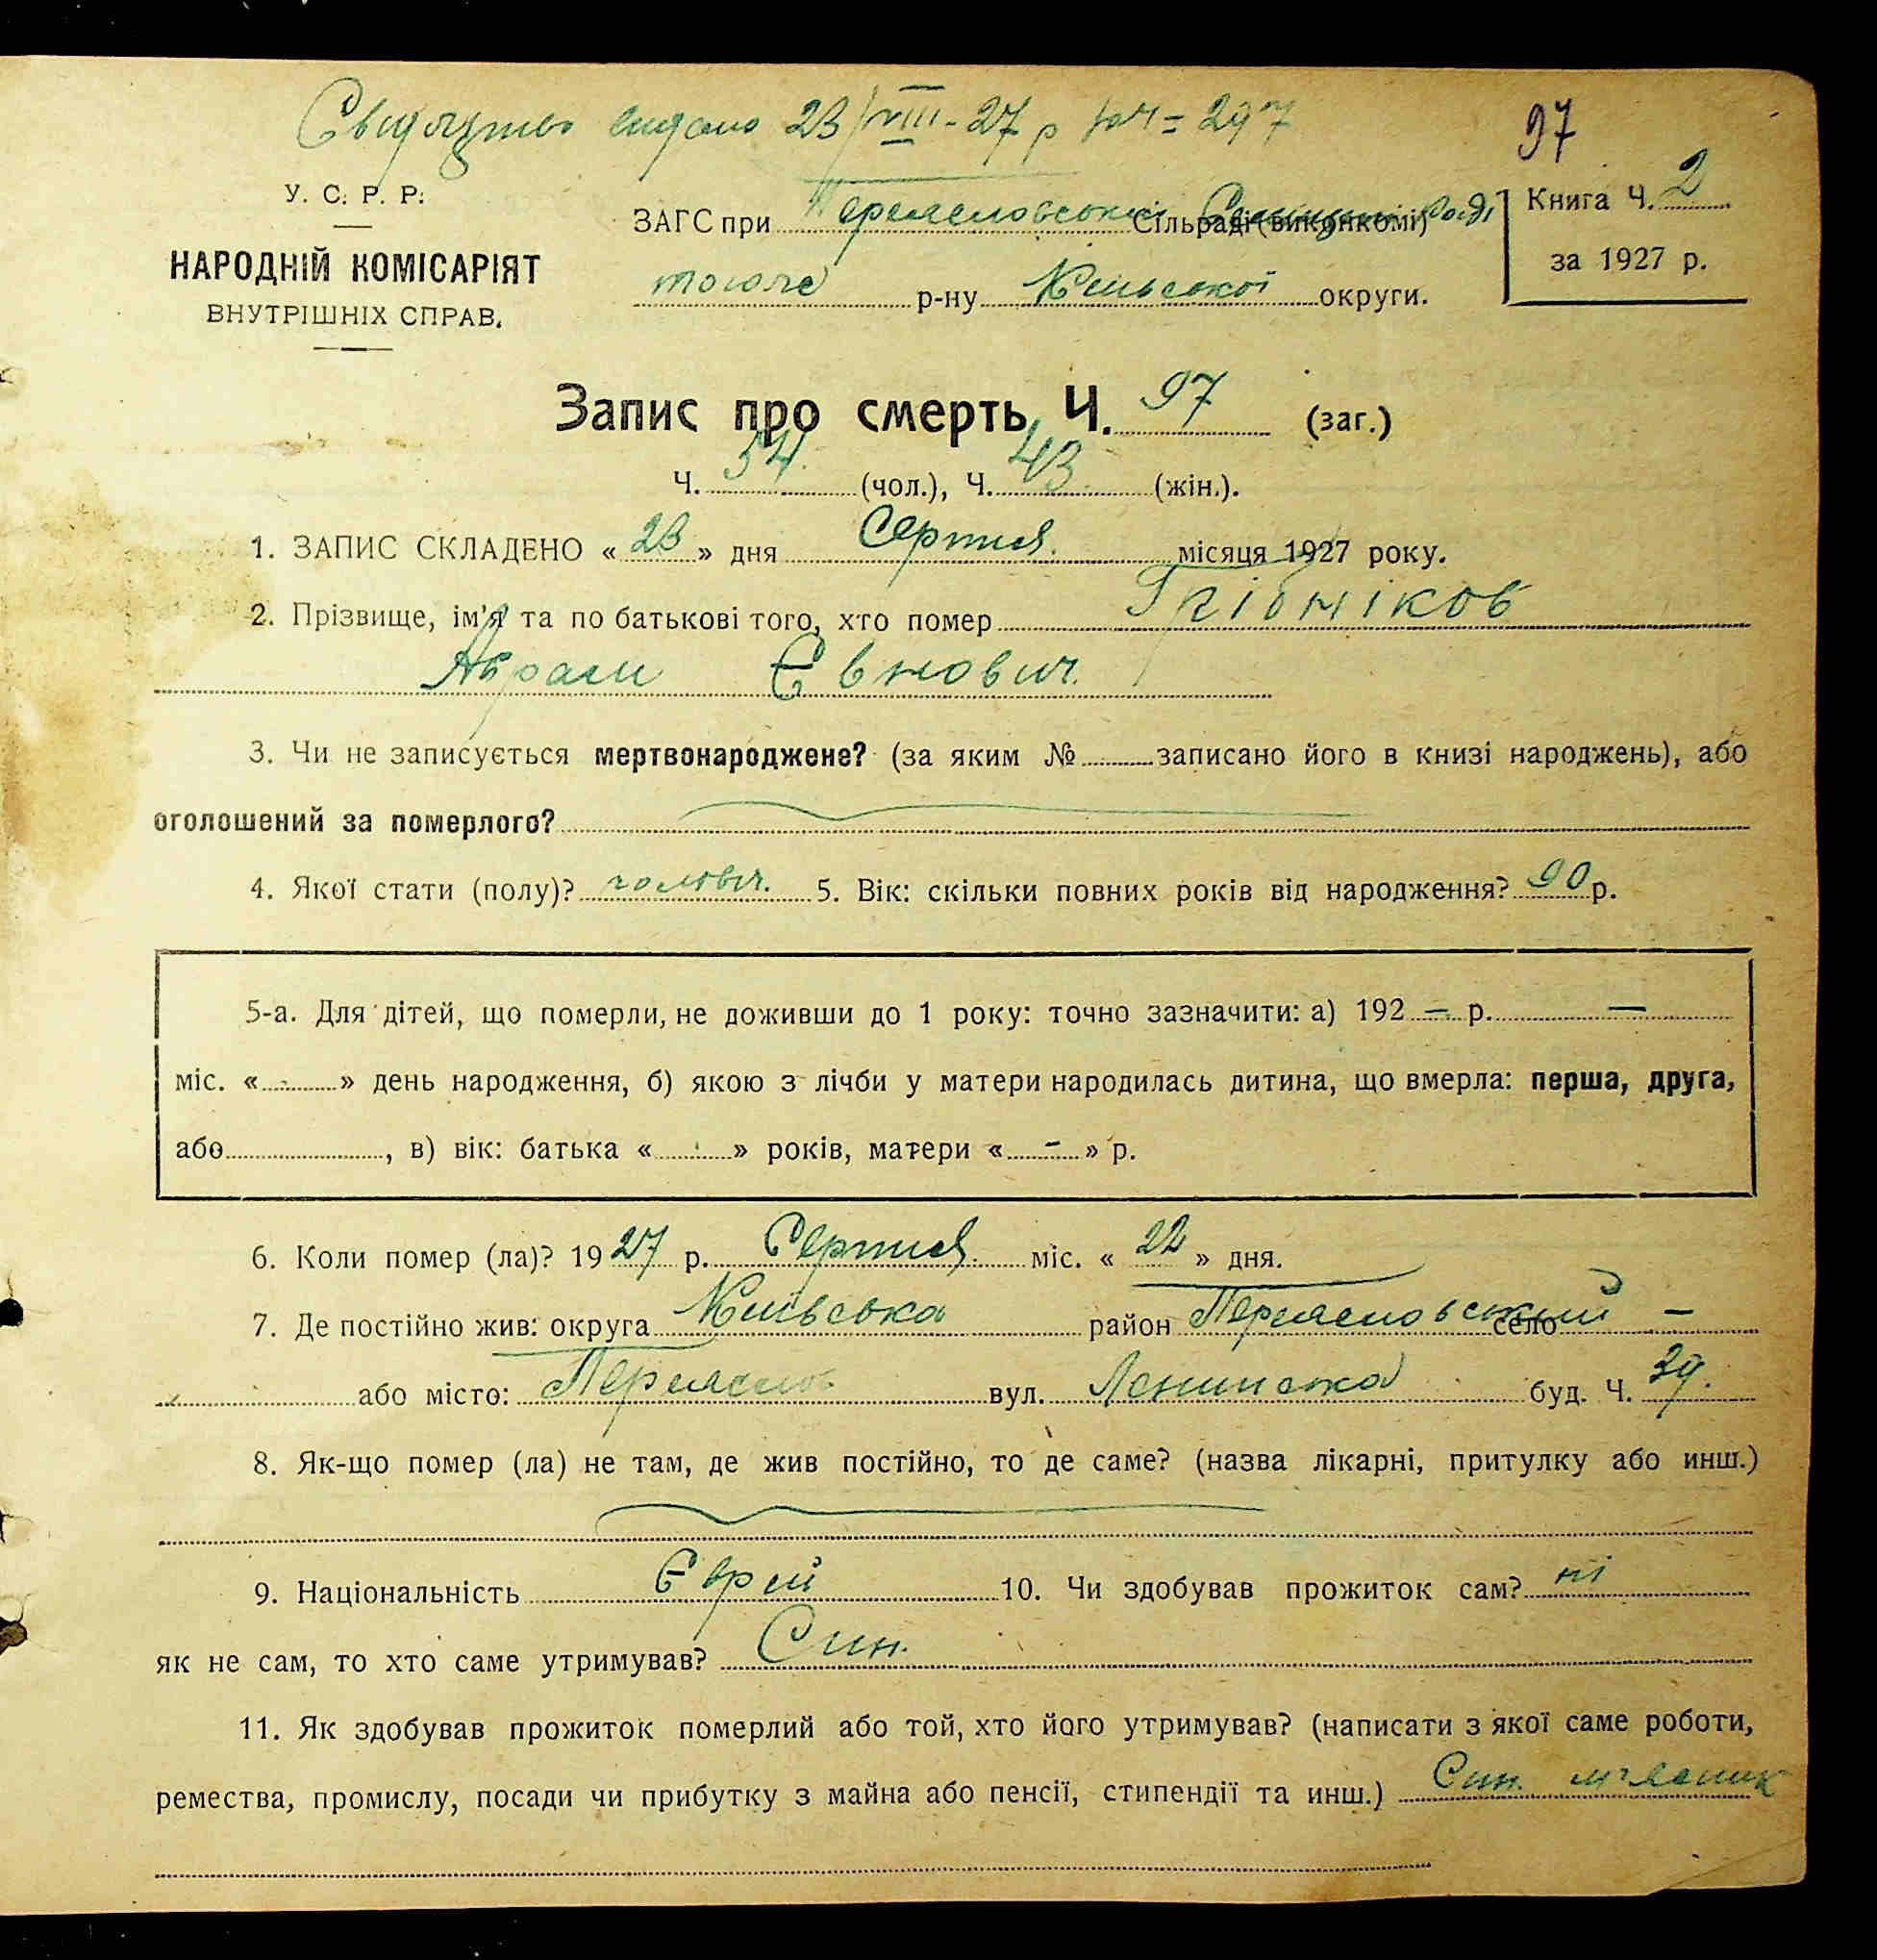 Свидоцтво видано 23/VIII-27 р № 297
97
У. С. Р. Р.
НАРОДНІЙ КОМІСАРІЯТ
ВНУТРІШНІХ СПРАВ.
ЗАГС при Переяславській Сільраді (виконкомі) Раді
тогоже р-ну Київської округи.
Книга Ч. 2
за 1927 р.
Запис про смерть Ч. 97 (заг.)
Ч. 54 (чол.), Ч. 43 (жін.).
1. ЗАПИС СКЛАДЕНО « 23 » дня Серпня місяця 1927 року.
2. Прізвище, ім'я та по батькові того, хто помер Грібніков
Абрам Євнович.
3. Чи не записується мертвонароджене? (за яким № записано його в книзі народжень), або
оголошений за померлого?
4. Якої стати (полу)? чоловіч. 5. Вік: скільки повних років від народження? 90 р.
5-а. Для дітей, що померли, не доживши до 1 року: точно зазначити: а) 192 — р. —
міс. « - » день народження, б) якою з лічби у матери народилась дитина, що вмерла: перша, друга,
або , в) вік: батька « - » років, матери « - » р.
6. Коли помер (ла)? 1927 р. Серпня міс. « 22 » дня.
7. Де постійно жив: округа Київська район Переяславський село —
або місто: Переяслав вул. Ленинська буд. Ч. 39.
8. Як-що помер (ла) не там, де жив постійно, то де саме? (назва лікарні, притулку або инш.)
9. Національність Єврей 10. Чи здобував прожиток сам? ні
як не сам, то хто саме утримував? Син.
11. Як здобував прожиток померлий або той, хто його утримував? (написати з якої саме роботи,
ремества, промислу, посади чи прибутку з майна або пенсії, стипендії та инш.) Син. мʼясник